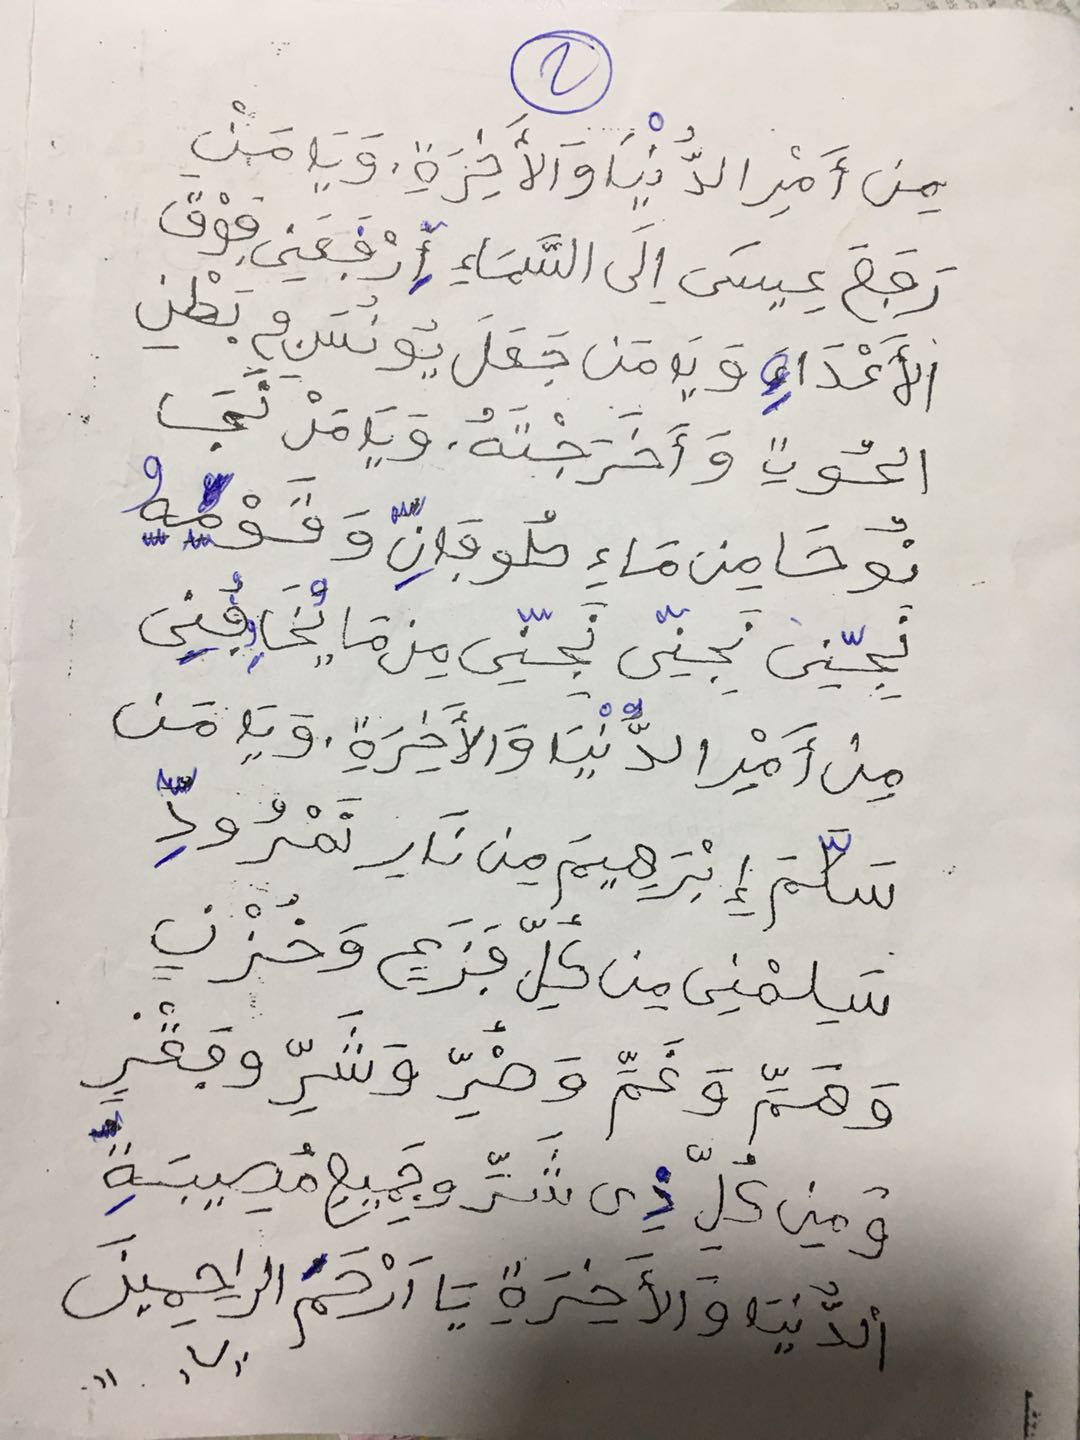 2
مِن أَمْرِ الدُّنْيَا وَالأَخِرَةِ. وَيَا مَنْ
رَفَعَ عِيسَى اِلَى السَّمَاءِ أِرْفَعْنِى فَوْقَ
الأَعْدَاءِ وَيَا مَن جَعَلَ يُونُسَ فِى بَطْنِ
الحُوتِ وَأَخْرَجْتَهُ. وَيَا مَنْ نَجَّا
نُوحَا مِن مَاءِ طُوفَانِ وَقَوْمِهِ
نَجِّنِى نَجِّنِى نَجِّنِى مِن مَا يُخَاوِفُنِى
مِن أَمْرِ الدُّنْيَا وَالأَخِرَةِ. وَيَا مَن
سَلَّمَ إِبْرَهِيمَ مِن نَارِ نَمْرُودِ
سَلِمْنِى مِن كُلِّ فَزَعٍ وَحُزْنٍ
وَهَمٍّ وَغَمٍّ وَضُرٍّ وَشَرٍّ وفَقْرٍ
وَمِن كُلِّ ذِى شَرٍّ وجَمِيعِ مُصِيبَةِ
الدُّنْيَا وَالأَخِرَةِ يَا اَرْحَمَ الرَاحِمِينَ